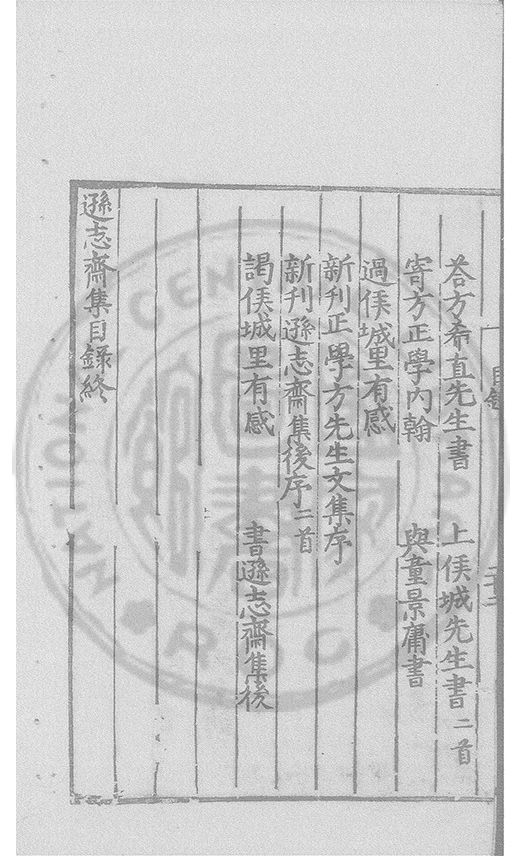 目錄
荅方希直先生書 上侯城先生書二首
寄方正學內翰 與童景庸書
過侯城里有感
新刋正學方先生文集序
新刋遜志齋集後序二首
謁侯城里有感 書遜志齋集後
遜志齋集目錄終